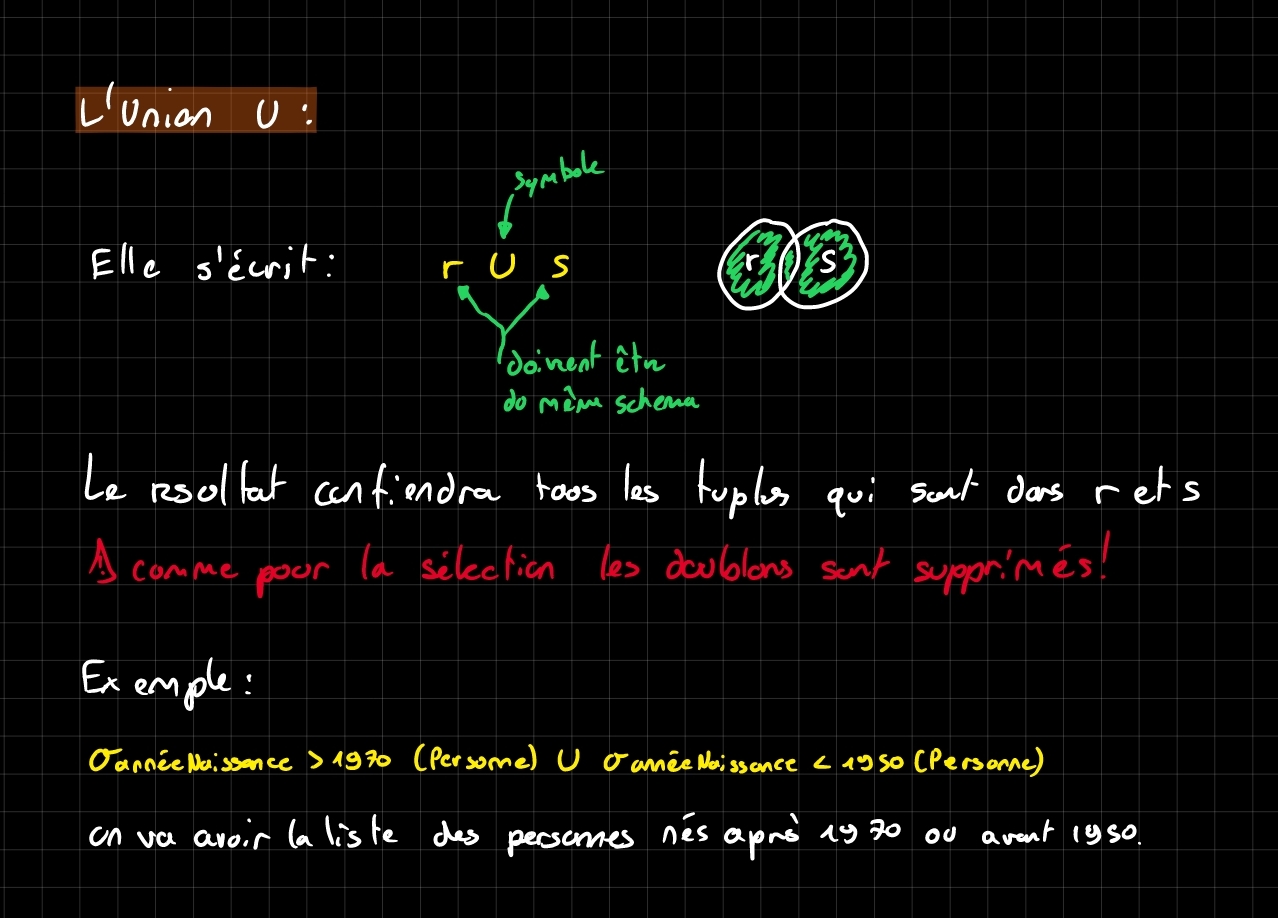 L'Union U :
symbole
Elle s'écrit : r U s
r s
doivent être
do même schema
Le rsoltat contiendra tous les tuples qui sont dans r et s
⚠ comme pour la sélection les doublons sont supprimés!
Exemple :
σ annéeNaissance > 1970 (Personne) U σ annéeNaissance < 1950 (Personne)
on va avoir la liste des personnes nés après 1970 ou avant 1950.